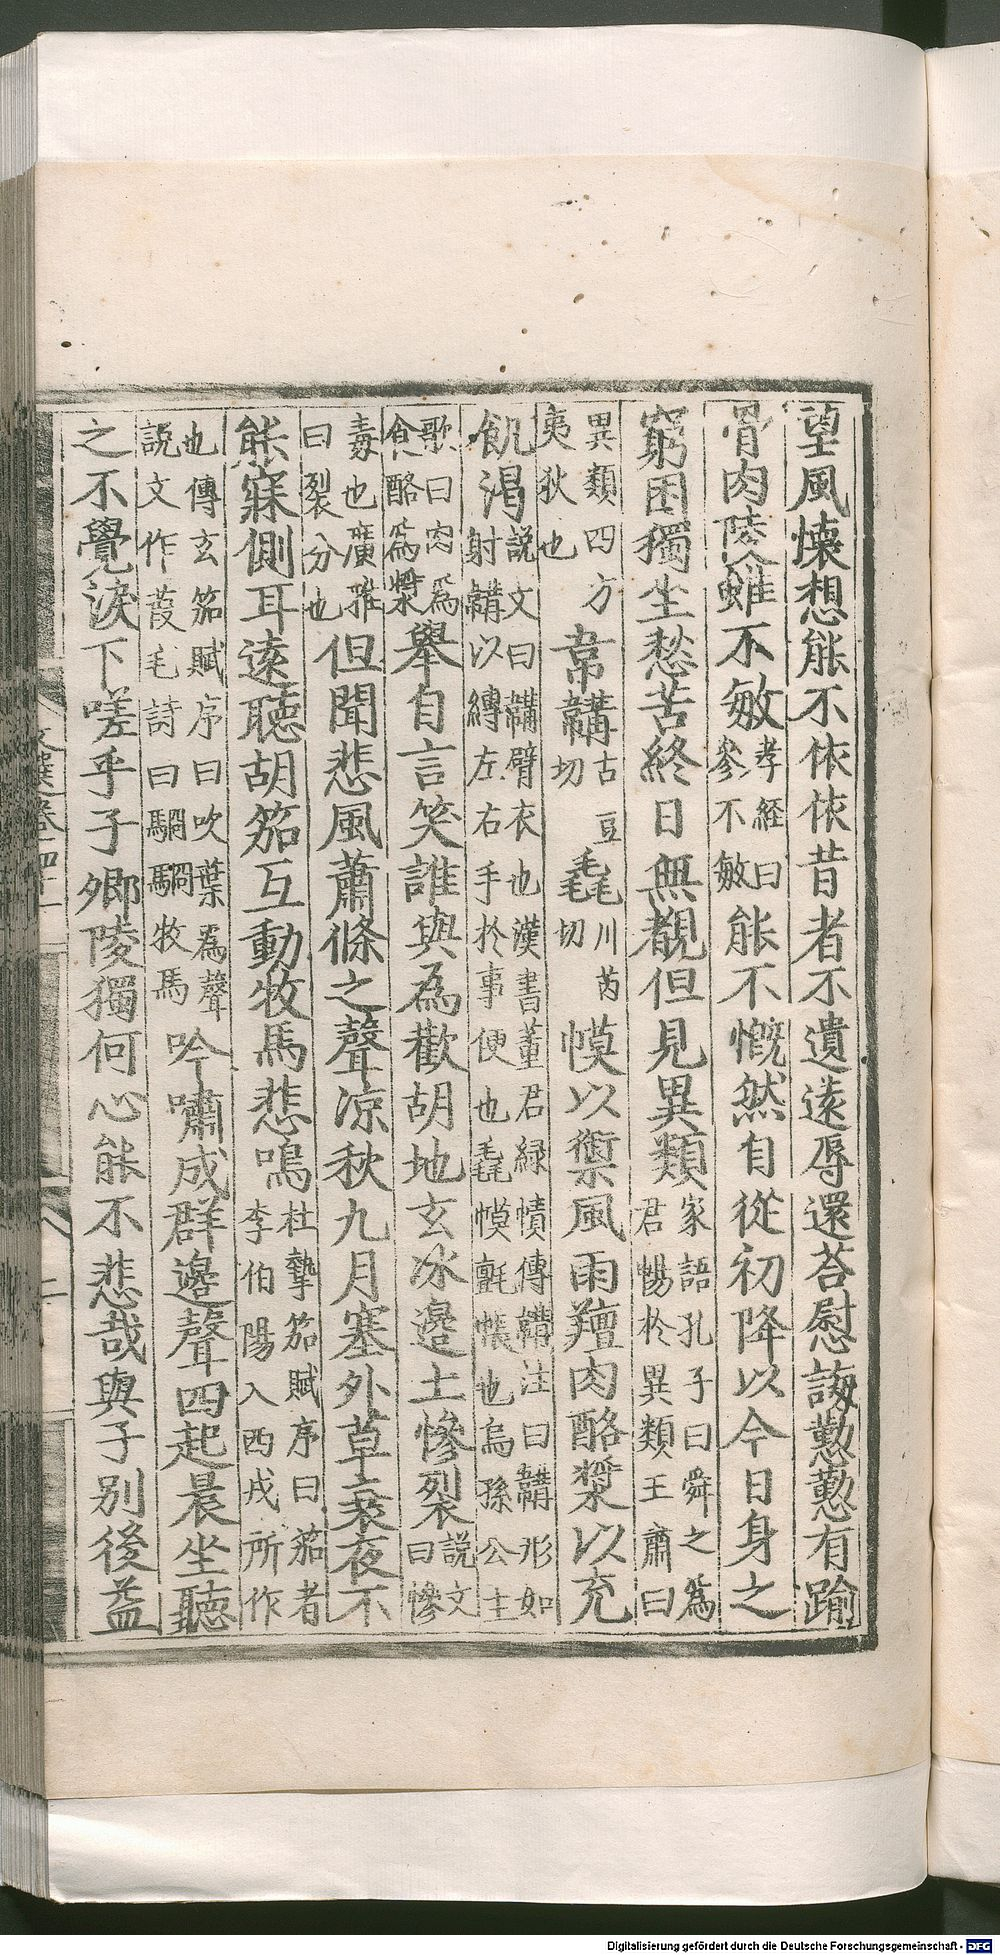 望風懐想能不依依昔者不遺遠辱還荅慰誨懃懃有踰
骨肉陵雖不敏孝經曰參不敏能不慨然自從初降以今日身之
窮困獨坐愁苦終日無覩但見異類家語孔子曰舜之為君暢於異類王肅曰
異類四方夷狄也韋韝古豆切毳川芮切幙以禦風雨羶肉酪漿以充
飢渇説文曰韝臂衣也漢書董君緑幘傳韝注曰韝形如射韝以縛左右手於事便也毳幙氈帳也烏孫公主
歌曰肉為食酪為漿舉自言笑誰與為歡胡地玄冰邊土慘裂説文曰慘
毒也廣雅曰裂分也但聞悲風蕭條之聲凉秋九月塞外草衰夜不
能寐側耳遠聽胡笳互動牧馬悲鳴杜摯笳賦序曰笳者李伯陽入西戎所作
也傳玄笳賦序曰吹葉為聲説文作葭毛詩曰駉駉牧馬吟嘯成群邊聲四起晨坐聽
之不覺淚下嗟乎子卿陵獨何心能不悲哉與子别後益
Digitalisierung gefördert durch die Deutsche Forschungsgemeinschaft - DFG